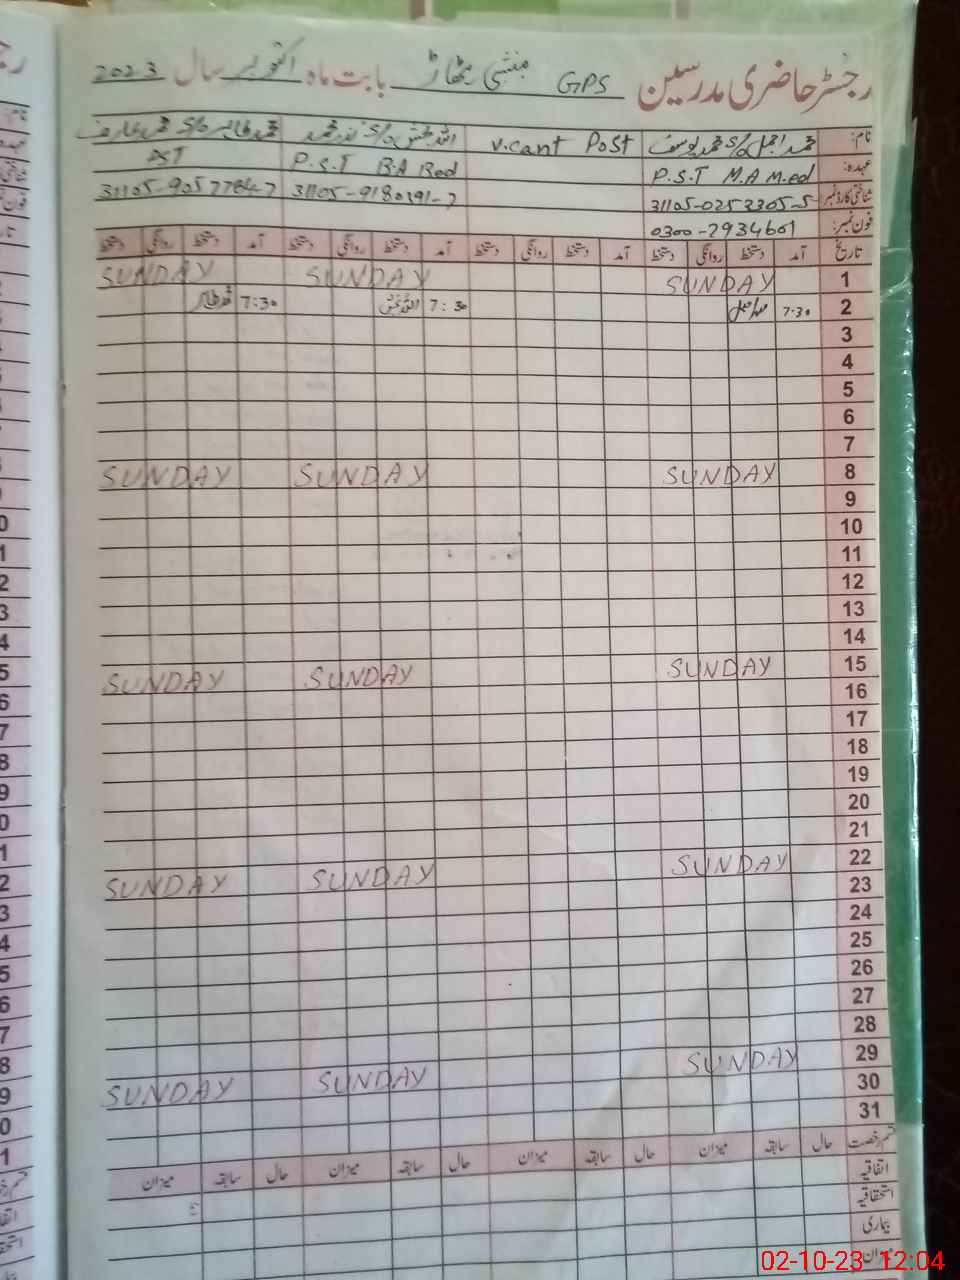 رجسٹر حاضری مدرسین GPS منشی بابت ماہ اکتوبر سال 2023
نام: محمد اجمل S/o محمد یوسف V.cant PoSt اللہ بخش S/o نذر محمد محمد طاہر S/o محمد عارف
عہدہ: P.S.T M.A M.ed P.S.T B.A Bed PST
شناختی کارڈ نمبر 31105-0252305-5 31105-9180191-7 31105-9057784-7
فون نمبر: 0300-2934601
تاریخ آمد دستخط روانگی دستخط آمد دستخط روانگی دستخط آمد دستخط روانگی دستخط آمد دستخط روانگی دستخط
1 SUNDAY SUNDAY SUNDAY
2 7:30 7:30 اللہ بخش 7:30 محمد طاہر
3
4
5
6
7
8 SUNDAY SUNDAY SUNDAY
9
10
11
12
13
14
15 SUNDAY SUNDAY SUNDAY
16
17
18
19
20
21
22 SUNDAY SUNDAY SUNDAY
23
24
25
26
27
28
29 SUNDAY SUNDAY SUNDAY
30
31
قسم رخصت حال سابقہ میزان حال سابقہ میزان حال سابقہ میزان حال سابقہ میزان
اتفاقیہ
استحقاقیہ
بیماری
میزان
02-10-23 12:04